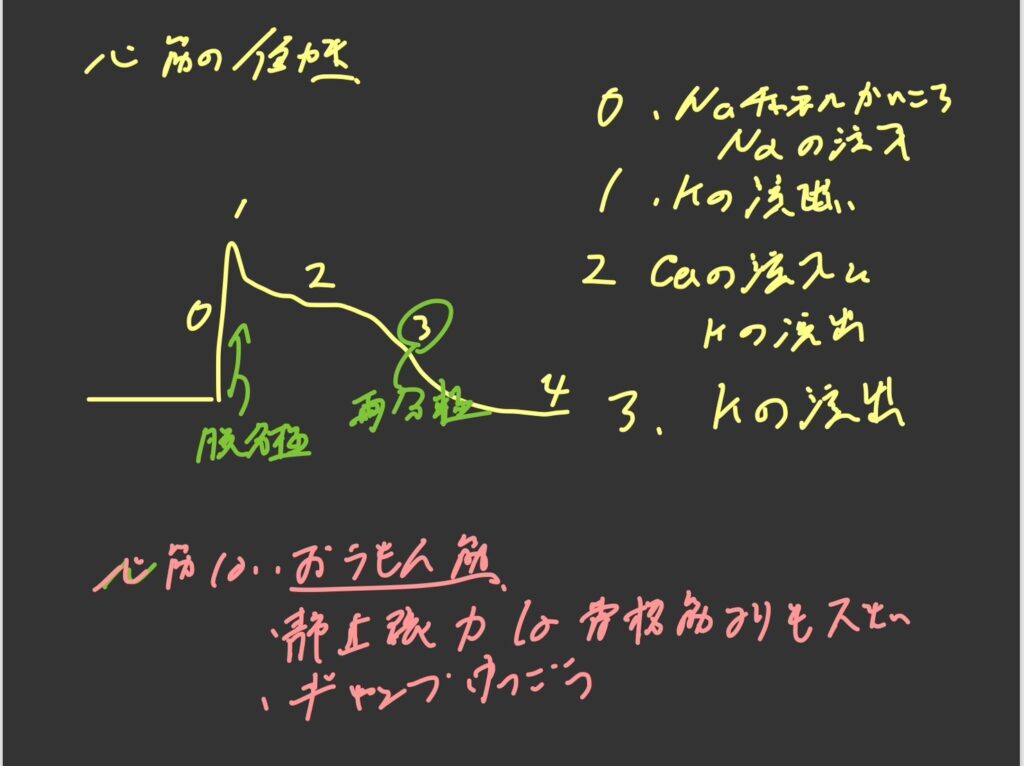 心筋の
0. Naチャネルがひらく
Naの流入
1. Kの流出
2 Caの流入と
Kの流出
3. Kの流出
0
1
2
3
4
脱分極
再分極
心筋は‥おうもん筋
・静止張力は骨格筋よりも大きい
・ギャップけつごう